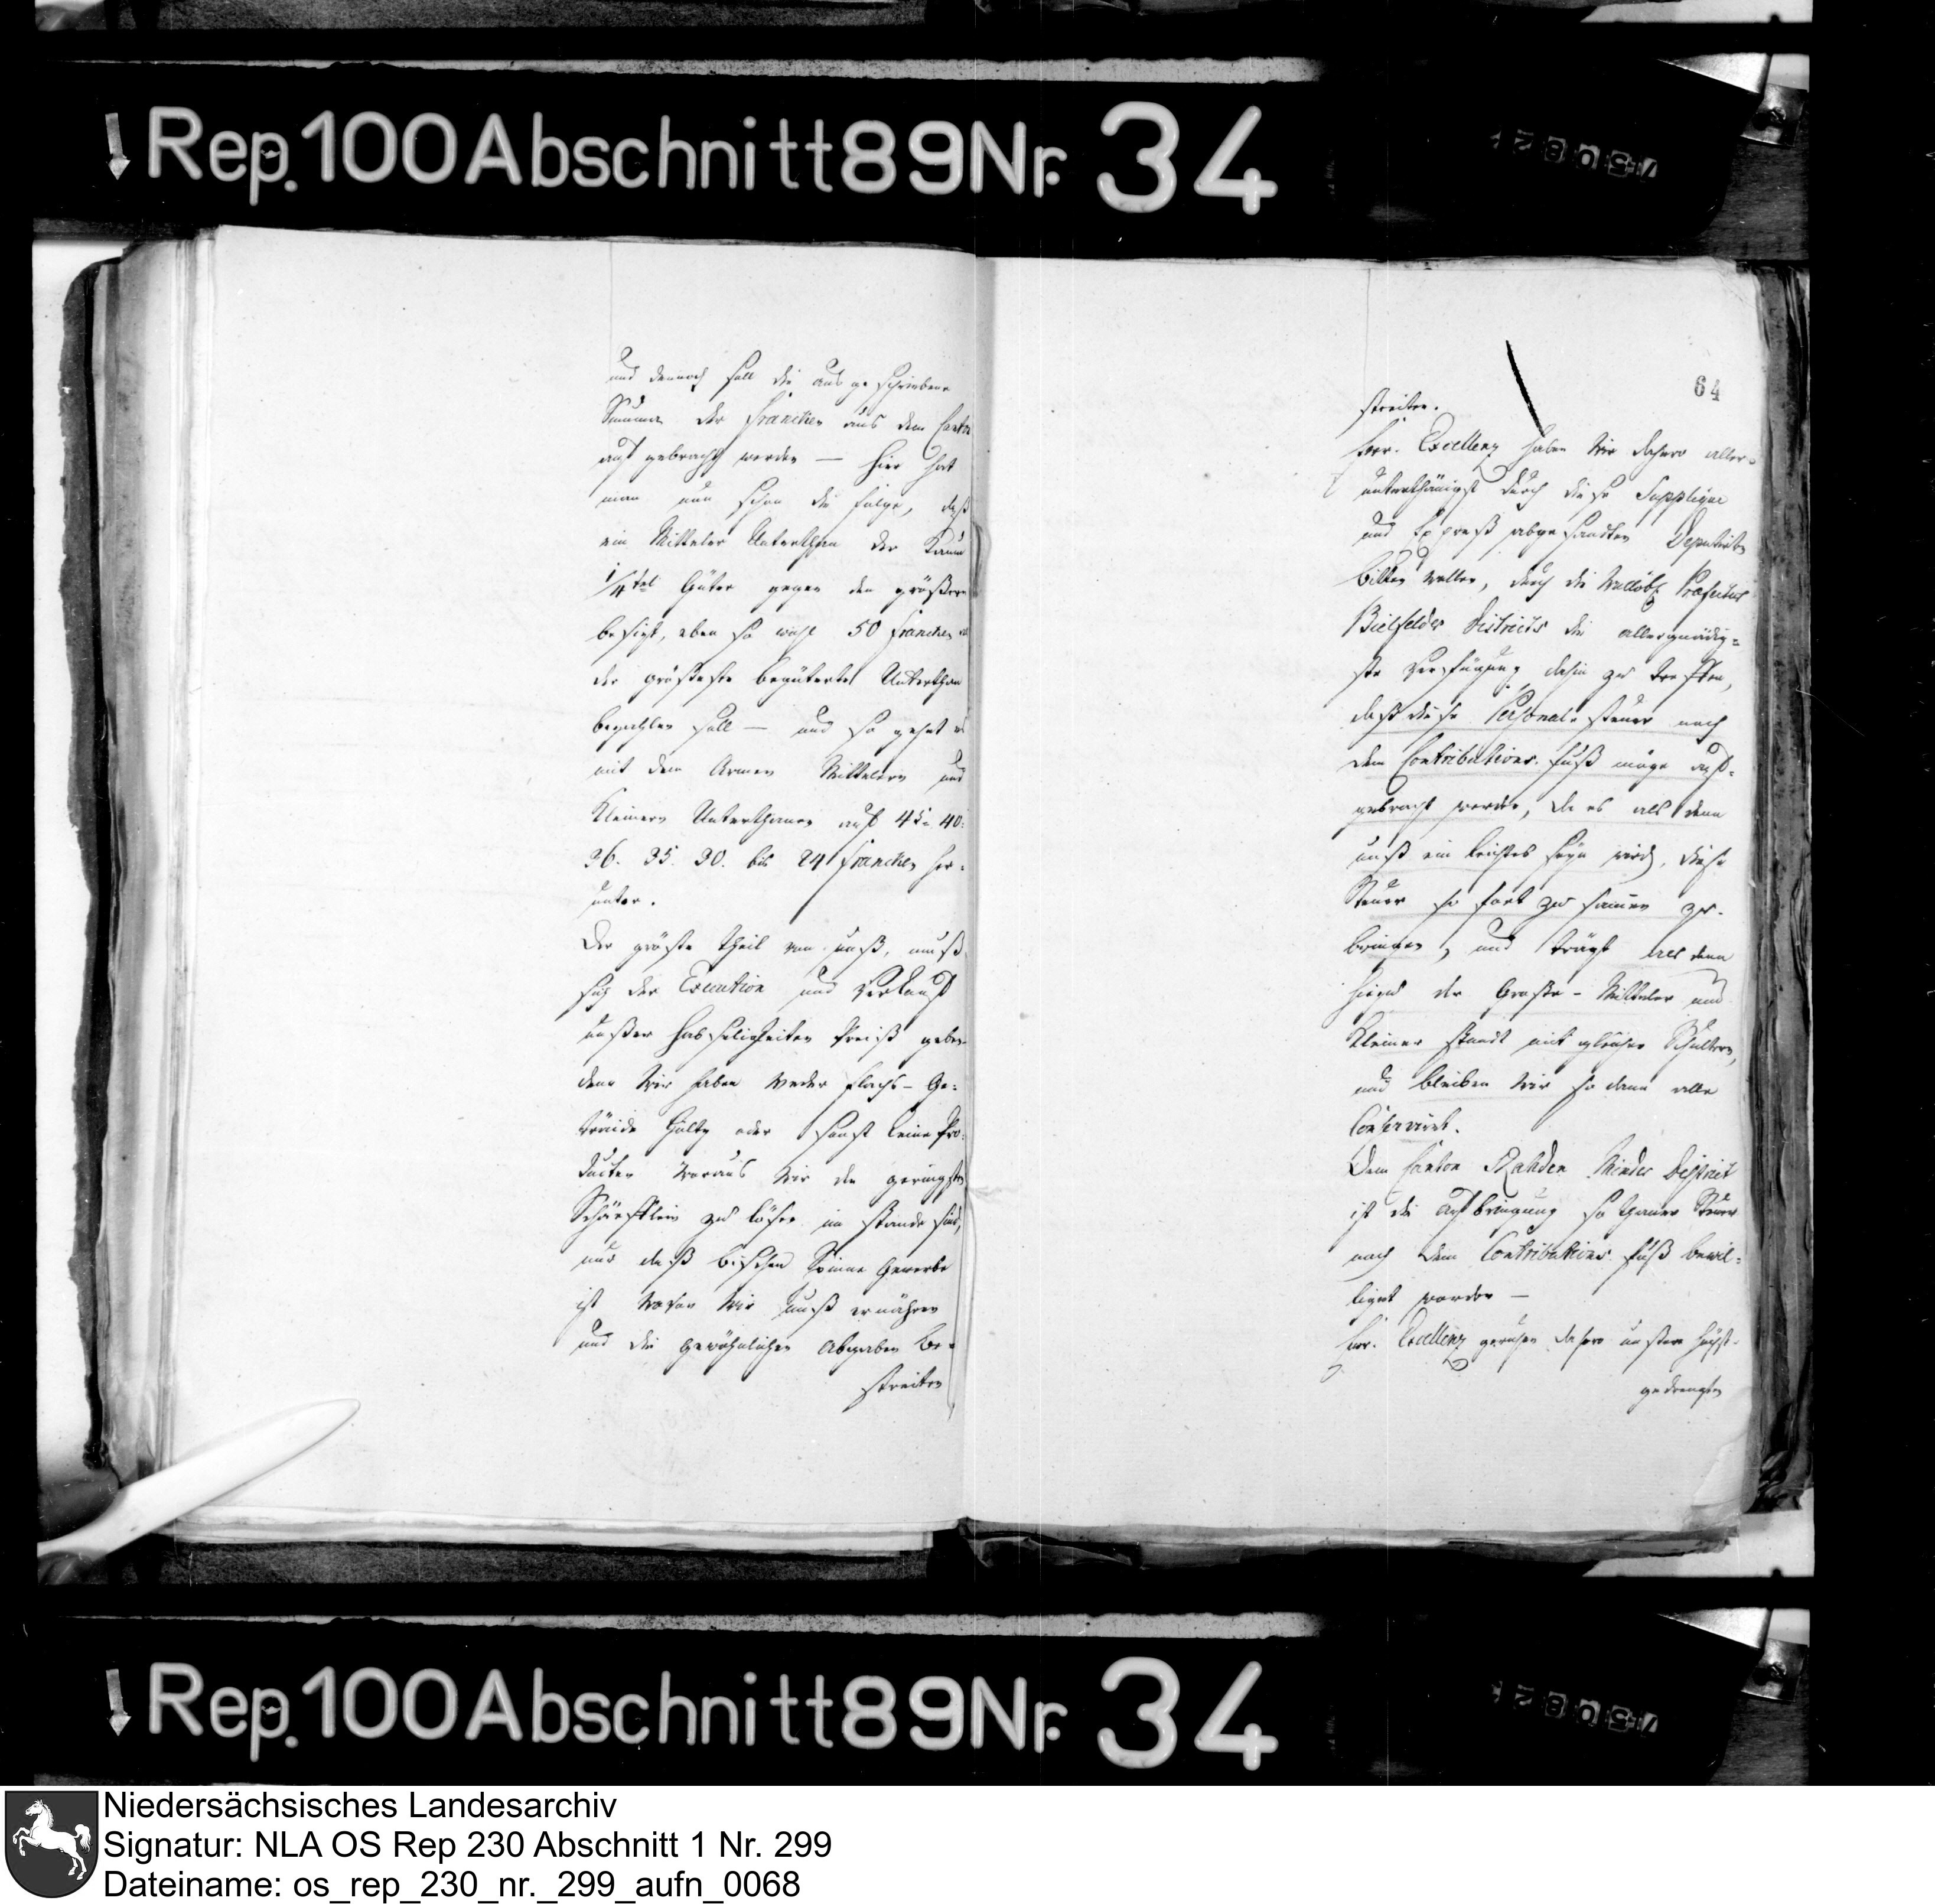 Rep. 100 Abschnitt 89 Nr. 34
und dennoch soll die ausgeschriebene
Summa der Francken aus dem Canton
auf gebracht werden — hier hat
man nun schon die folge, daß
ein Mitteler Unterthan der kaum
1/4tel Güter gegen den größern
besizt, eben so wohl 50 francken
der größeste begüterte Unterthan
bezahlen soll — und so gehet es
mit dem Armen Mittelern und
Kleinern Unterthanen auf 45. 40.
36. 35. 30. bis 24 francken her-
unter.
Der größte theil von unß, muß
sich der Execution und Verkauf
unßer Habseligkeiten Preiß geben
denn Wir haben weder flachs - Ge-
träide Holtz oder sonst keine Pro-
ducten woraus Wir den geringsten
Schärfflein zu lösen im stande sind,
nur daß bischen Spinn Gewerbe
ist wovon Wir unß ernähren
und die gewöhnlichen Abgaben be-
streiten
64
streiten.
Euer. Excellenz haben Wir dahero aller-
unterthänigst durch diese Supplique
und Expreß abgesandten Deputirten
bitten wollen, durch die Wollöbl. Præfectur
Bielfelder Districts die allergnädig-
ste Verfügung dahin zu treffen,
daß diese Personal-steuer nach
dem Contributions-fuß möge auf-
gebracht werden, da es als denn
unß ein leichtes seyn wird, diese
Steuer so fort zu samen zu-
bringen, und trägt als denn
hiezu der Große - Mitteler und
Kleiner standt mit gleicher Schultern,
und bleiben Wir so dann alle
Conserviret.
Dem Canton Rahden Minder District
ist die Aufbringung so thaner Steuer
nach dem Contributions-fuß bewil-
liget worden —
Euer. Excellenz geruhen dahero unsern höchst-
gedrengten
Rep. 100 Abschnitt 89 Nr. 34
Niedersächsisches Landesarchiv
Signatur: NLA OS Rep 230 Abschnitt 1 Nr. 299
Dateiname: os_rep_230_nr._299_aufn_0068